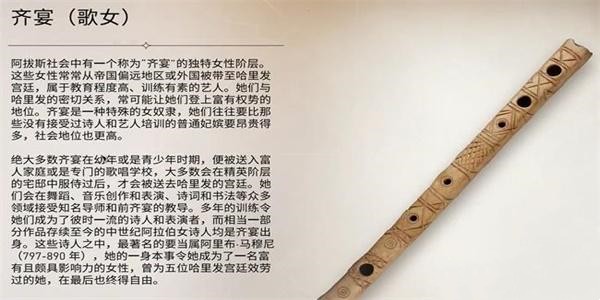 齐宴（歌女）
阿拔斯社会中有一个称为"齐宴"的独特女性阶层。
这些女性常常从帝国偏远地区或外国被带至哈里发
宫廷，属于教育程度高、训练有素的艺人。她们与
哈里发的密切关系，常可能让她们登上富有权势的
地位。齐宴是一种特殊的女奴隶，她们往往要比那
些没有接受过诗人和艺人培训的普通妃嫔要昂贵得
多，社会地位也更高。
绝大多数齐宴在幼年或是青少年时期，便被送入富
人家庭或是专门的歌唱学校，大多数会在精英阶层
的宅邸中服侍过后，才会被送去哈里发的宫廷。她
们会在舞蹈、音乐创作和表演、诗词和书法等众多
领域接受知名导师和前齐宴的教导。多年的训练令
她们成为了彼时一流的诗人和表演者，而相当一部
分作品存续至今的中世纪阿拉伯女诗人均是齐宴出
身。这些诗人之中，最著名的要当属阿里布·马穆尼
（797-890 年），她的一身本事令她成为了一名富
有且颇具影响力的女性，曾为五位哈里发宫廷效劳
过的她，在最后也终得自由。